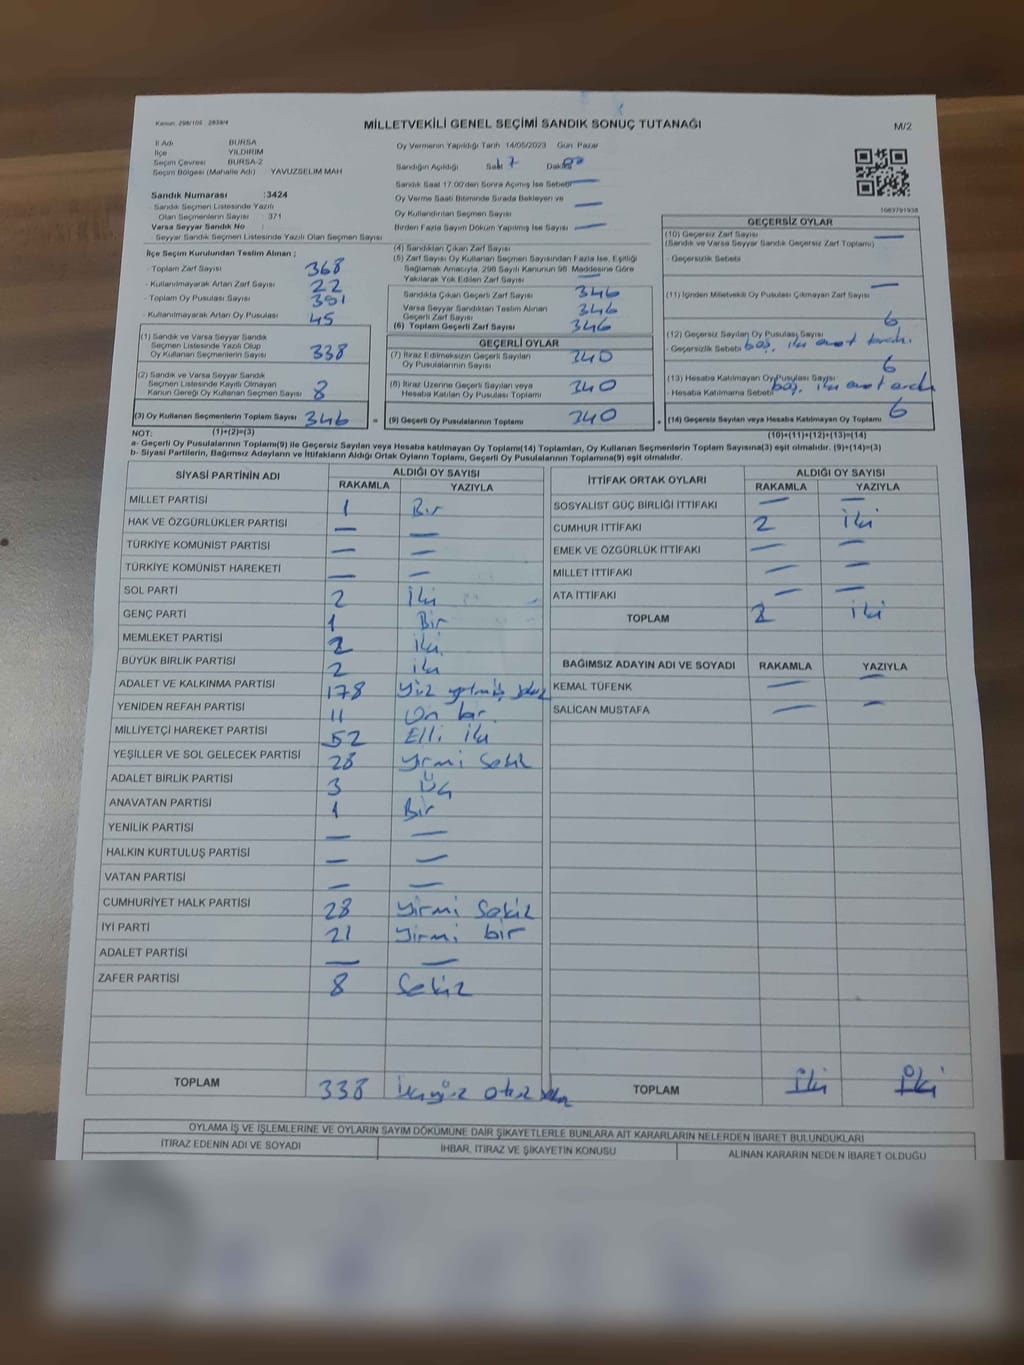 Kanun: 298/105 2839/4
MİLLETVEKİLİ GENEL SEÇİMİ SANDIK SONUÇ TUTANAĞI
M/2
İl Adı BURSA
İlçe YILDIRIM
Seçim Çevresi BURSA-2
Seçim Bölgesi (Mahalle Adı) YAVUZSELIM MAH
Oy Vermenin Yapıldığı Tarih 14/05/2023 Gün: Pazar
Sandığın Açıldığı
Sandık Saat 17.00'den Sonra Açılmış İse Sebebi —
Oy Verme Saati Bitiminde Sırada Bekleyen ve
Oy Kullandırılan Seçmen Sayısı —
Birden Fazla Sayım Döküm Yapılmış İse Sayısı —
Sandık Numarası :3424
- Sandık Seçmen Listesinde Yazılı
Olan Seçmenlerin Sayısı : 371
Varsa Seyyar Sandık No :
- Seyyar Sandık Listesinde Yazılı Olan Seçmen Sayısı
İlçe Seçim Kurulundan Teslim Alınan ;
- Toplam Zarf Sayısı 368
- Kullanılmayarak Artan Zarf Sayısı 22
- Toplam Oy Pusulası Sayısı
- Kullanılmayarak Artan Oy Pusulası 45
(1) Sandık ve Varsa Seyyar Sandık
Seçmen Listesinde Yazılı Olup
Oy Kullanan Seçmenlerin Sayısı 338
(2) Sandık ve Varsa Seyyar Sandık
Seçmen Listesinde Kayıtlı Olmayan
Kanun Gereği Oy Kullanan Seçmen Sayısı 8
(3) Oy Kullanan Seçmenlerin Toplam Sayısı 346 =
(1)+(2)=(3)
(4) Sandıktan Çıkan Zarf Sayısı
(5) Zarf Sayısı Oy Kullanan Seçmen Sayısından Fazla İse, Eşitliği
Sağlamak Amacıyla, 298 Sayılı Kanunun 98. Maddesine Göre
Yakılarak Yok Edilen Zarf Sayısı —
Sandıkta Çıkan Geçerli Zarf Sayısı 346
Varsa Seyyar Sandıktan Teslim Alınan
Geçerli Zarf Sayısı 346
(6) Toplam Geçerli Zarf Sayısı 346
GEÇERLİ OYLAR
(7) İtiraz Edilmeksizin Geçerli Sayılan
Oy Pusulalarının Sayısı 340
(8) İtiraz Üzerine Geçerli Sayılan veya
Hesaba Katılan Oy Pusulası Toplamı 340
(9) Geçerli Oy Pusulalarının Toplamı 340 +
1083791938
GEÇERSİZ OYLAR
(10) Geçersiz Zarf Sayısı —
(Sandık ve Varsa Seyyar Sandık Geçersiz Zarf Toplamı)
- Geçersizlik Sebebi
(11) İçinden Milletvekili Oy Pusulası Çıkmayan Zarf Sayısı —
(12) Geçersiz Sayılan Oy Pusulası Sayısı 6
- Geçersizlik Sebebi boş,
(13) Hesaba Katılmayan Oy Pusulası Sayısı 6
- Hesaba Katılmama Sebebi boş,
(14) Geçersiz Sayılan veya Hesaba Katılmayan Oy Toplamı 6
(10)+(11)+(12)+(13)=(14)
NOT:
a- Geçerli Oy Pusulalarının Toplamı(9) ile Geçersiz Sayılan veya Hesaba katılmayan Oy Toplamı(14) Toplamları, Oy Kullanan Seçmenlerin Toplam Sayısına(3) eşit olmalıdır. (9)+(14)=(3)
b- Siyasi Partilerin, Bağımsız Adayların ve İttifakların Aldığı Ortak Oyların Toplamı, Geçerli Oy Pusulalarının Toplamına(9) eşit olmalıdır.
SİYASİ PARTİNİN ADI ALDIĞI OY SAYISI
RAKAMLA YAZIYLA
MİLLET PARTİSİ 1 Bir
HAK VE ÖZGÜRLÜKLER PARTİSİ — —
TÜRKİYE KOMÜNİST PARTİSİ — —
TÜRKİYE KOMÜNİST HAREKETİ — —
SOL PARTİ 2 İki
GENÇ PARTİ 1 Bir
MEMLEKET PARTİSİ 2 iki
BÜYÜK BİRLİK PARTİSİ 2 iki
ADALET VE KALKINMA PARTİSİ 178
YENİDEN REFAH PARTİSİ 11 On bir
MİLLİYETÇİ HAREKET PARTİSİ 52 Elli iki
YEŞİLLER VE SOL GELECEK PARTİSİ 28 yirmi Sekiz
ADALET BİRLİK PARTİSİ 3 Üç
ANAVATAN PARTİSİ 1 Bir
YENİLİK PARTİSİ — —
HALKIN KURTULUŞ PARTİSİ — —
VATAN PARTİSİ — —
CUMHURİYET HALK PARTİSİ 28 yirmi Sekiz
İYİ PARTİ 21 yirmi bir
ADALET PARTİSİ — —
ZAFER PARTİSİ 8 Sekiz
TOPLAM 338
İTTİFAK ORTAK OYLARI ALDIĞI OY SAYISI
RAKAMLA YAZIYLA
SOSYALİST GÜÇ BİRLİĞİ İTTİFAKI — —
CUMHUR İTTİFAKI 2 iki
EMEK VE ÖZGÜRLÜK İTTİFAKI — —
MİLLET İTTİFAKI — —
ATA İTTİFAKI — —
TOPLAM 2 iki
BAĞIMSIZ ADAYIN ADI VE SOYADI RAKAMLA YAZIYLA
KEMAL TÜFENK — —
SALİCAN MUSTAFA — —
TOPLAM İki İki
OYLAMA İŞ VE İŞLEMLERİNE VE OYLARIN SAYIM DÖKÜMÜNE DAİR ŞİKAYETLERLE BUNLARA AİT KARARLARIN NELERDEN İBARET BULUNDUKLARI
İTİRAZ EDENİN ADI VE SOYADI
İHBAR, İTİRAZ VE ŞİKAYETİN KONUSU
ALINAN KARARIN NEDEN İBARET OLDUĞU